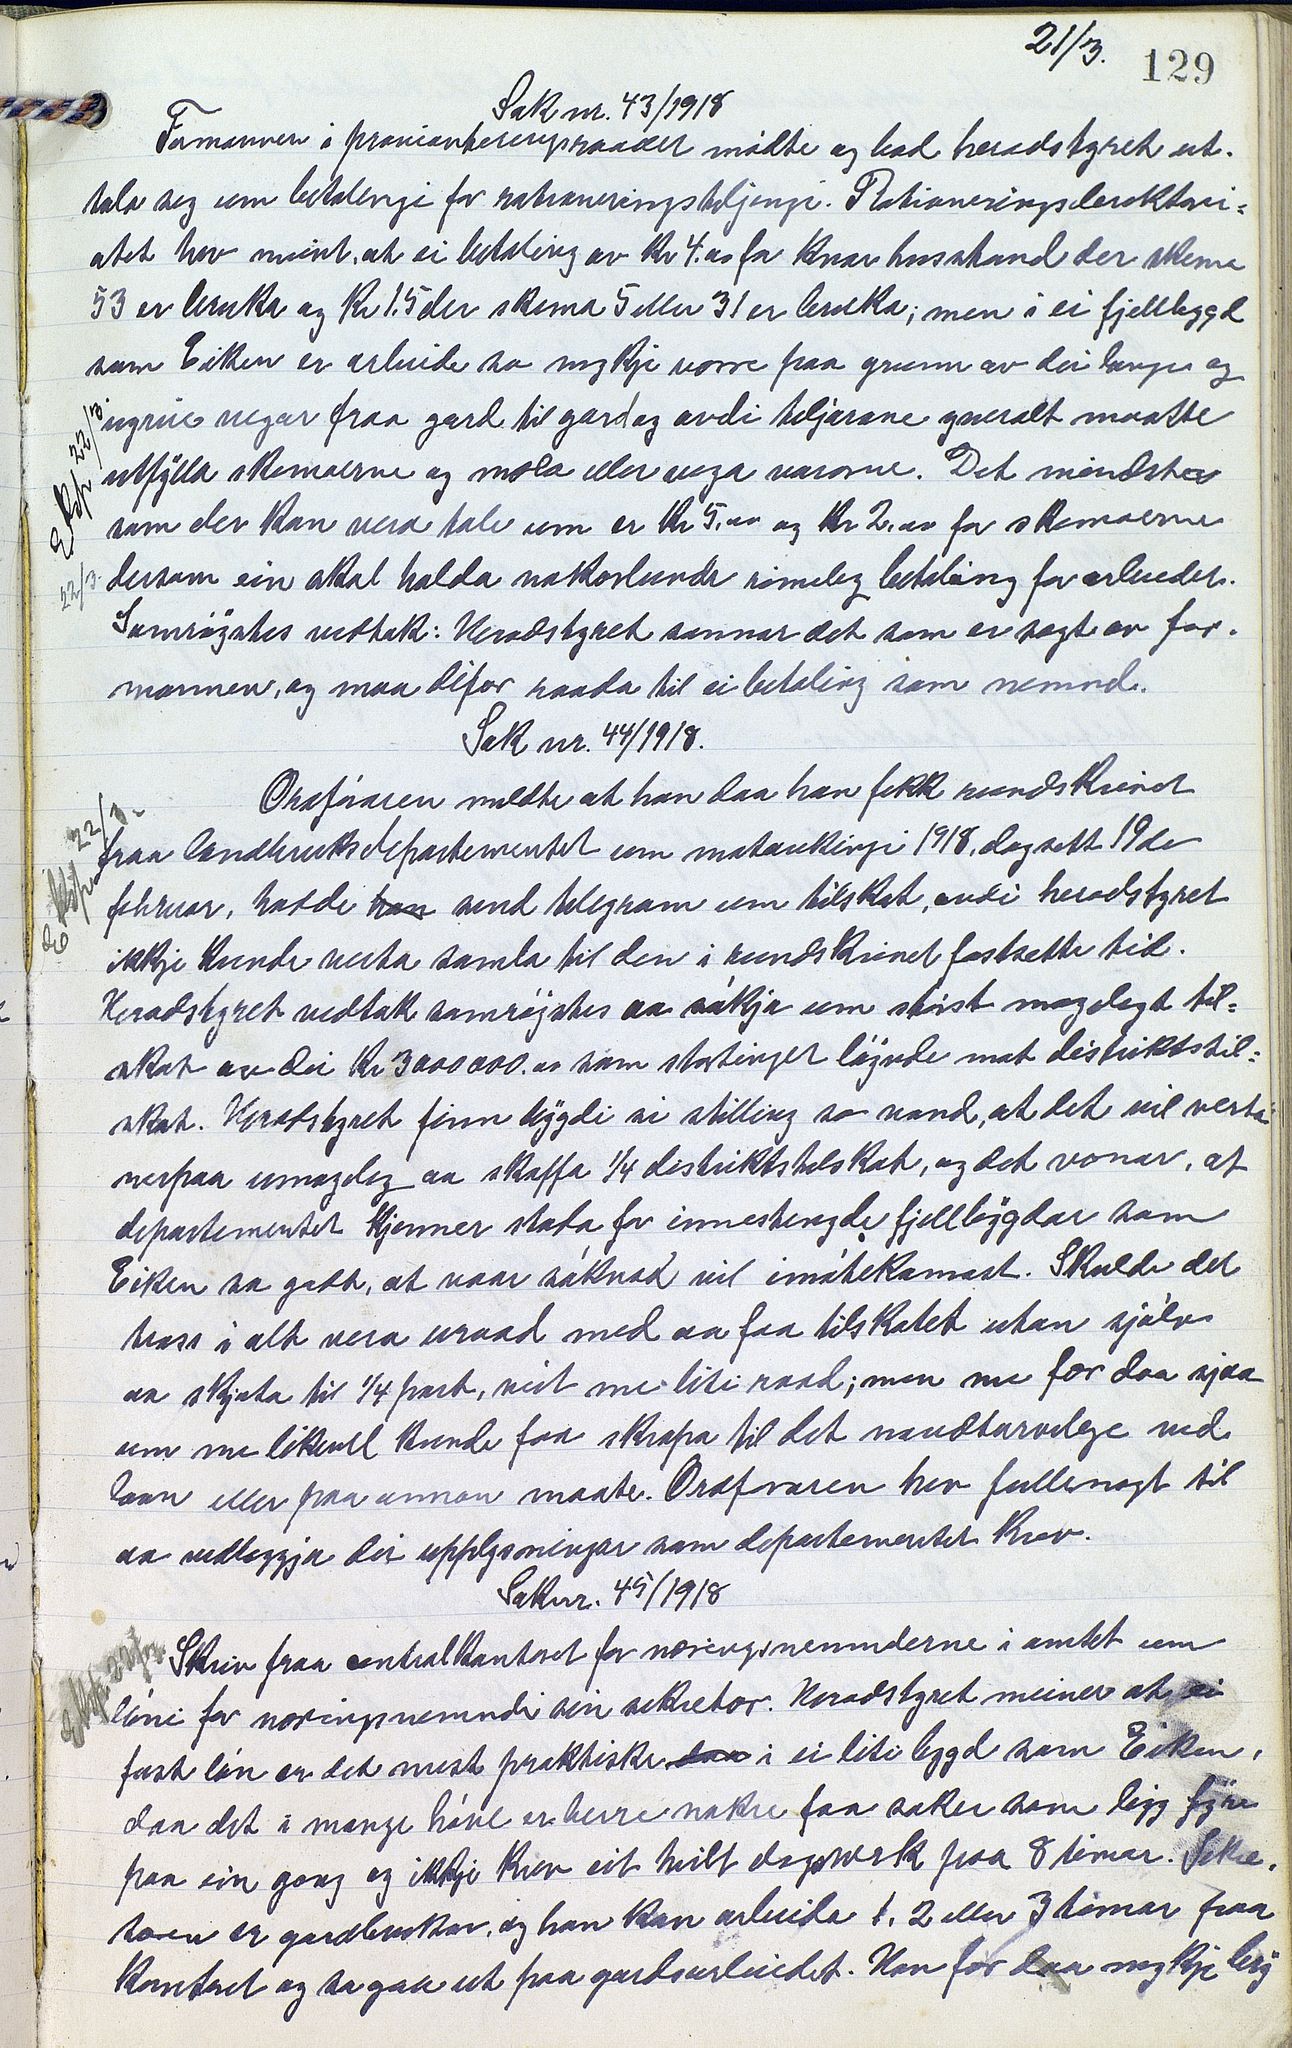 21/3.
129
Sak nr. 43/1918
Formannen i provianteringsraadet møtte og bad heradstyret ut-
tala seg um betalingi for rationeringsteljingi. Rationeringsdirektori-
atet hev meint, at ei betaling av Kr 4.00 for kvar husstand der skema
53 er bruka og Kr 1.5 der skema 5 eller 31 er bruka; men i ei fjellbygd
som Eiken er arbeide so mykje verre paa grunn av dei lange og
ugreie vegar fraa gard til gard og avdi teljarane generalt maatte
utfylla skemaerne og mæla eller vega varorne. Det mindste
som der kan vera tale um er Kr 5.00 og Kr 2.00 for skemaerne
dersom ein skal halda nokorlunde rimeleg betaling for arbeidet.
Samrøystes vedtak: Heradstyret sannar det som er sagt av for-
mannen, og maa difor raada til ei betaling som nemnd.
Eksp 22/3.
22/3.
Sak nr. 44/1918.
Ordføraren meldte at han daa han fekk rundskrivet
fraa landbruksdepartementet um mataukingi 1918, dagsett 19de
februar, hadde han send telegram um tilskot, avdi heradstyret
ikkje kunde verta samla til den i rundskrivet fastsette tid.
Heradstyret vedtak samrøystes aa søkja um størst mogelegt til-
skot av dei Kr 3000000.00 som stortinget løyvde mot distriktstil-
skot. Heradstyret finn bygdi si stilling so vand, at det vil verta
nerpaa umogeleg aa skaffa 1/4 distriktstilskot, og det vonar, at
departementet kjenner stoda for innestengde fjellbygdar som
Eiken so godt, at vaar søknad vil imøtekomast. Skulde det
tross i alt vera uraad med aa faa tilskotet utan sjølv
aa skjota til 1/4 part, veit me lite raad; men me før daa sjaa
um me likevel kunde faa skrapa til det naudturvelege ved
laan eller paa annan maate. Ordføraren hev fullmagt til
aa vedleggja dei upplysningar som departementet krev.
Eksp 22/3.
Sak nr. 45/1918
Skriv fraa centralkontoret for næringsnemnderne i amtet um
løni for næringsnemndi sin sekretær. Heradstyret meiner at ei
fast løn er det mest praktiske i ei liti bygd som Eiken,
daa det i mange høve er berre nokre faa saker som ligg fyre
paa ein gong og ikkje krev eit heilt dagsverk paa 8 timar. Sekre-
tæren er gardbrukar, og han kan arbeida 1, 2 eller 3 timar paa
kontoret og so gaa ut paa gardsarbeidet. Han før daa mykje
Eksp 22/3